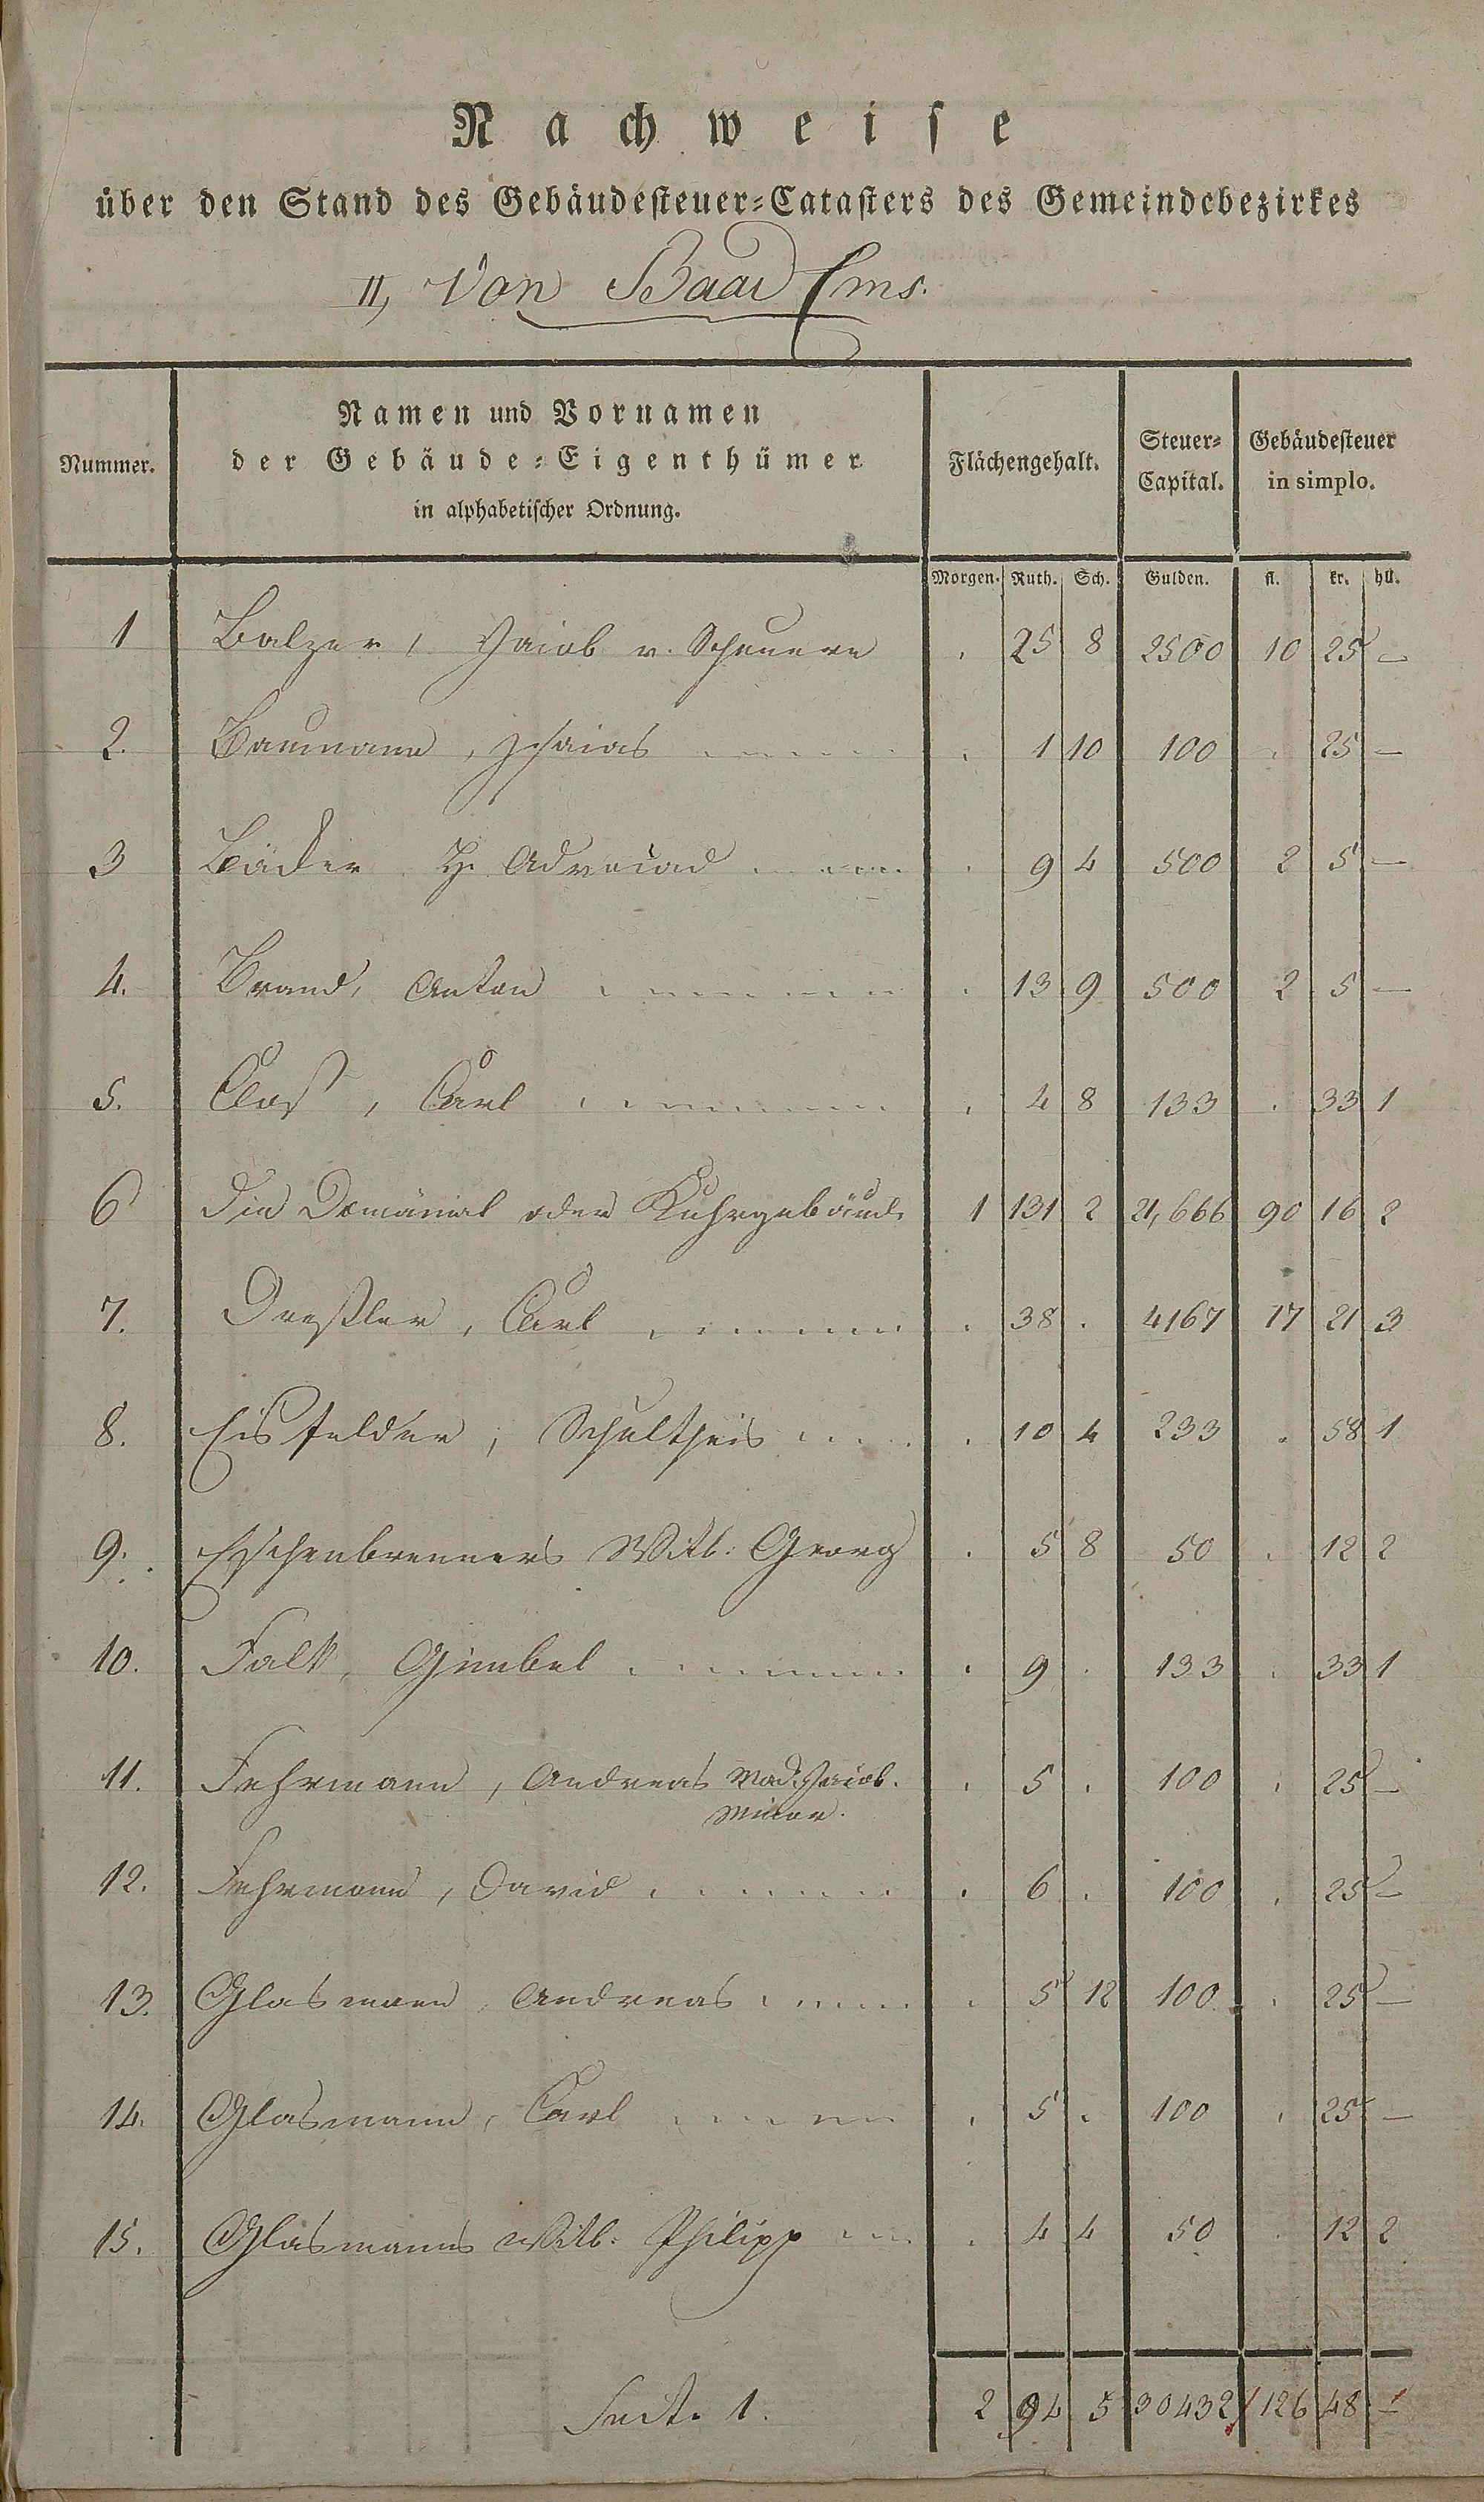 Nachweise
über den Stand des Gebäudesteuer-Catasters des Gemeindebezirkes
II, Von Baad Ems.
Nummer. Namen und Vornamen der Gebäude-Eigenthümer in alphabetischer Ordnung. Flächengehalt. Steuer-Capital. Gebäudesteuer in simplo.
Morgen. Ruth. Sch. Gulden. fl. kr. hll.
1 Balzer, Jacob v. Scheuern . 25 8 2500 10 25 —
2. Baumann, . 1 10 100 . 25 —
3 Bäcker H. . 9 4 500 2 5 —
4. Brand, Anton . 13 9 500 2 5 —
5. Cloß, Carl . 4 8 133 . 33 1
6 Die Domänial oder Kuhrgebäude 1 131 2 21,666 90 16 2
7. Dreßler, Carl . 38 . 4167 17 21 3
8. Eisfelder, Schultheis . 10 4 233 . 58 1
9. Eschenbrenners Witb: Georg . 5 8 50 . 12 2
10. Falk, Gimbel . 9 . 133 . 33 1
11. Fehrmann, Andreas Jacob. . 5 . 100 . 25 —
Minor.
12. Fehrmann, David . 6 . 100 . 25 —
13. Glasmann, Andreas . 5 12 100 . 25 —
14. Glasmann, Carl . 5 . 100 . 25 —
15. Glasmanns Witb: Philipp . 4 4 50 . 12 2
Seite 1. 2 94 5 30432 126 48 —